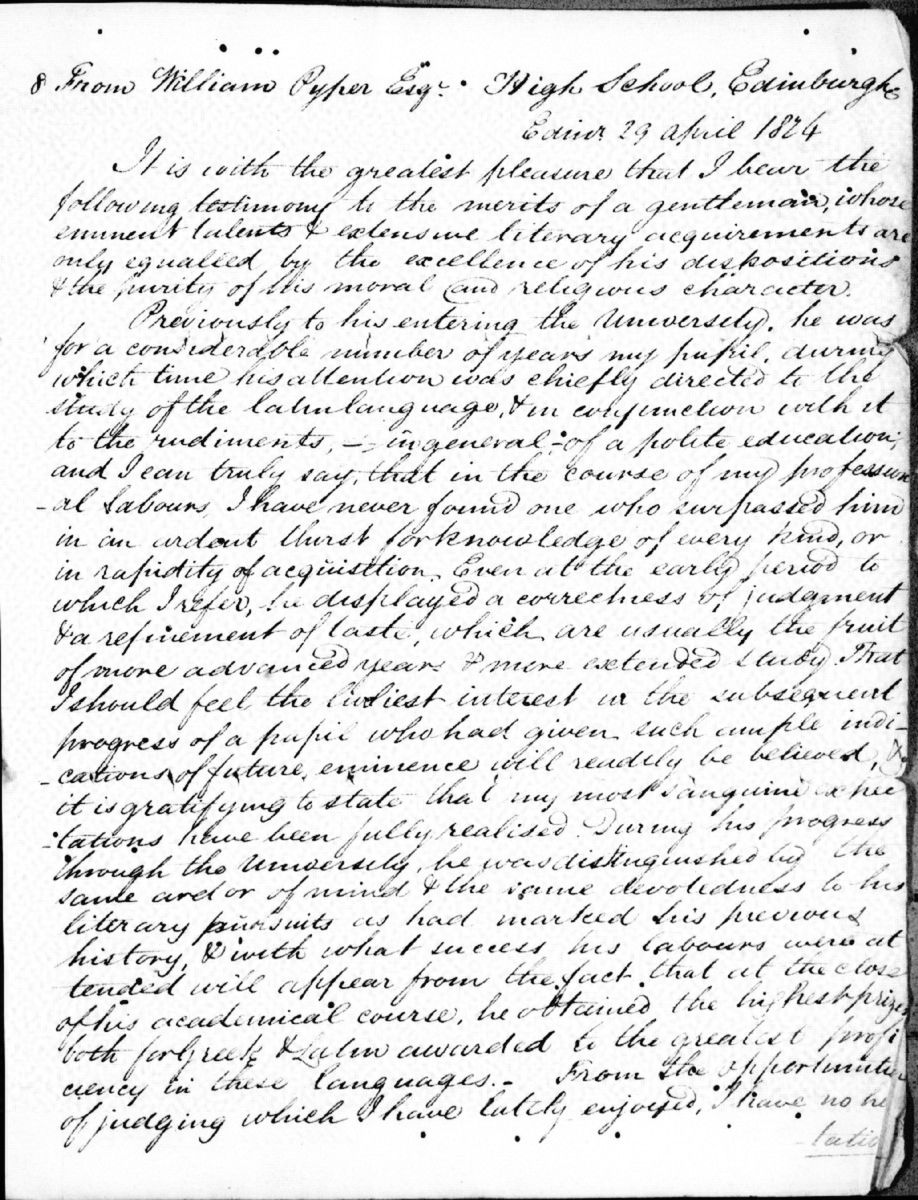 8 From William Pyper Esqr. High School, Edinburgh
Edinr. 29 April 1824
It is with the greatest pleasure that I bear the
following testimony to the merits of a gentleman, whose
eminent talents & extensive literary acquirements are
only equalled by the excellence of his dispositions
& the purity of his moral and religious character.
Previously to his entering the University, he was
for a considerable number of years my pupil, during
which time his attention was chiefly directed to the
study of the latin language, & in conjunction with it
to the rudiments, - in general - of a polite education;
and I can truly say, that in the course of my profession
-al labours, I have never found one who surpassed him
in an ardent thirst for knowledge of every kind, or
in rapidity of acquisition. Even at the early period to
which I refer, he displayed a correctness of judgment
& a refinement of taste, which are usually the fruit
of more advanced years & more extended study. That
I should feel the liveliest interest in the subsequent
progress of a pupil who had given such ample indi-
-cations of future eminence will readily be believed, &
it is gratifying to state that my most sanguine expec
-tations have been fully realised. During his progress
through the University, he was distinguished by the
same ardor of mind & the same devotedness to his
literary pursuits as had marked his previous
history, & with what success his labours were at
tended will appear from the fact that at the close
of his academical course, he obtained the highest prizes
both for Greek & Latin awarded to the greatest profi
ciency in these languages. - From the opportunities
of judging which I have lately enjoyed, I have no he
tatio